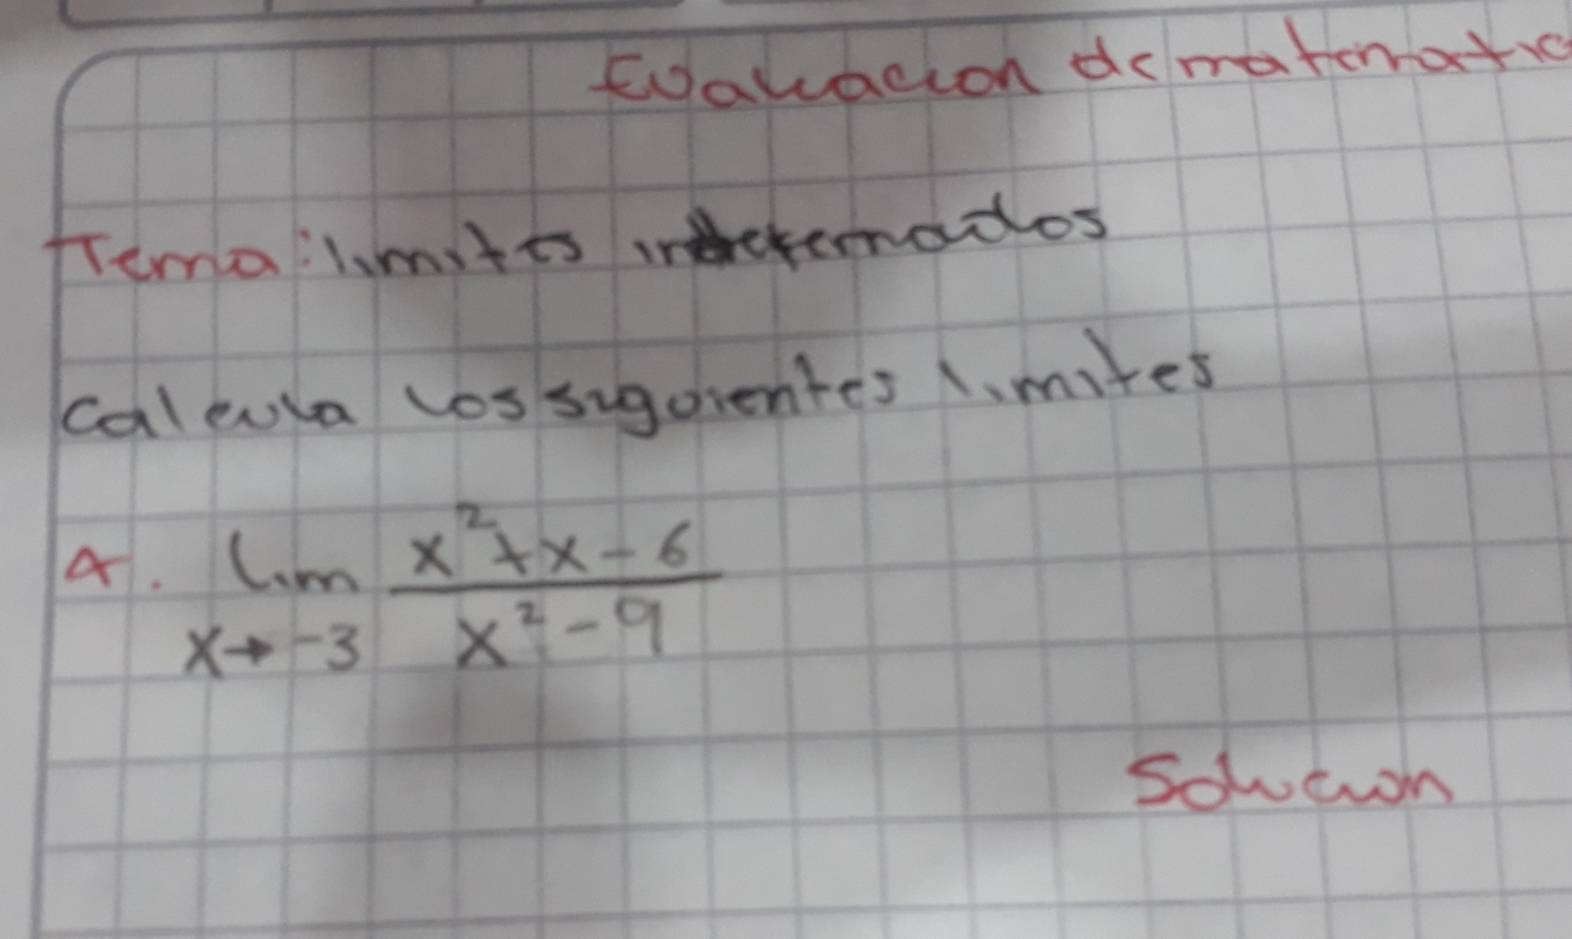 Evaluacion de matematic
Tema: limites indetemados
calcula los siguientes limites
A. lim x²+x-6
x→-3 x²-9
Solucion